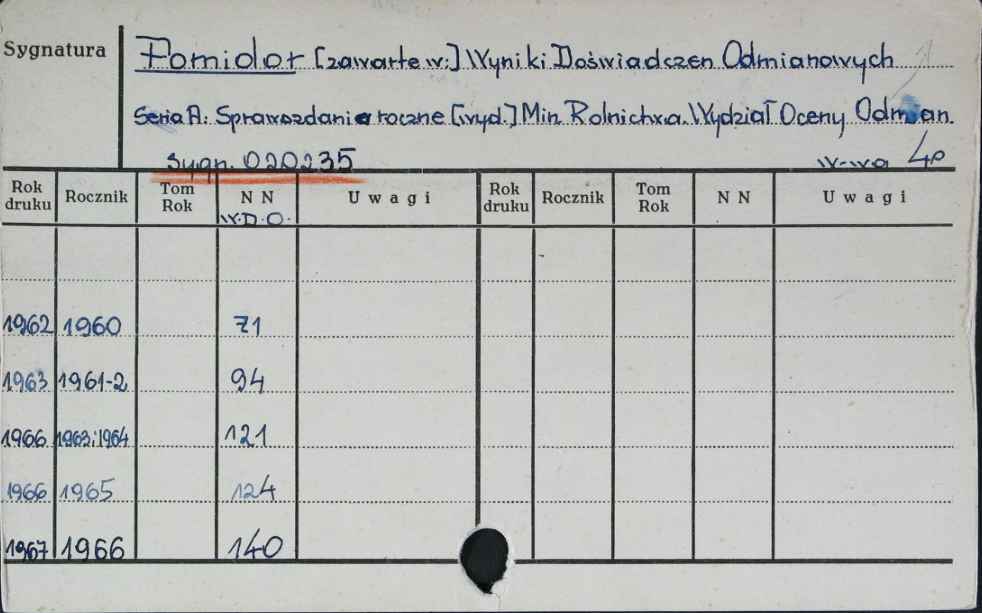 Sygnatura
Pomidor [zawarte w:] Wyniki Doświadczeń Odmianowych
Seria A: Sprawozdania roczne [wyd.] Min. Rolnictwa. Wydział Oceny Odmian.
Sygn. 020235 W-wa 4°
Rok druku Rocznik Tom Rok NN Uwagi Rok druku Rocznik Tom Rok NN Uwagi
W.D.O.
1962 1960 71
1963 1961-2 94
1966 1963i1964 121
1966 1965 124
1967 1966 140